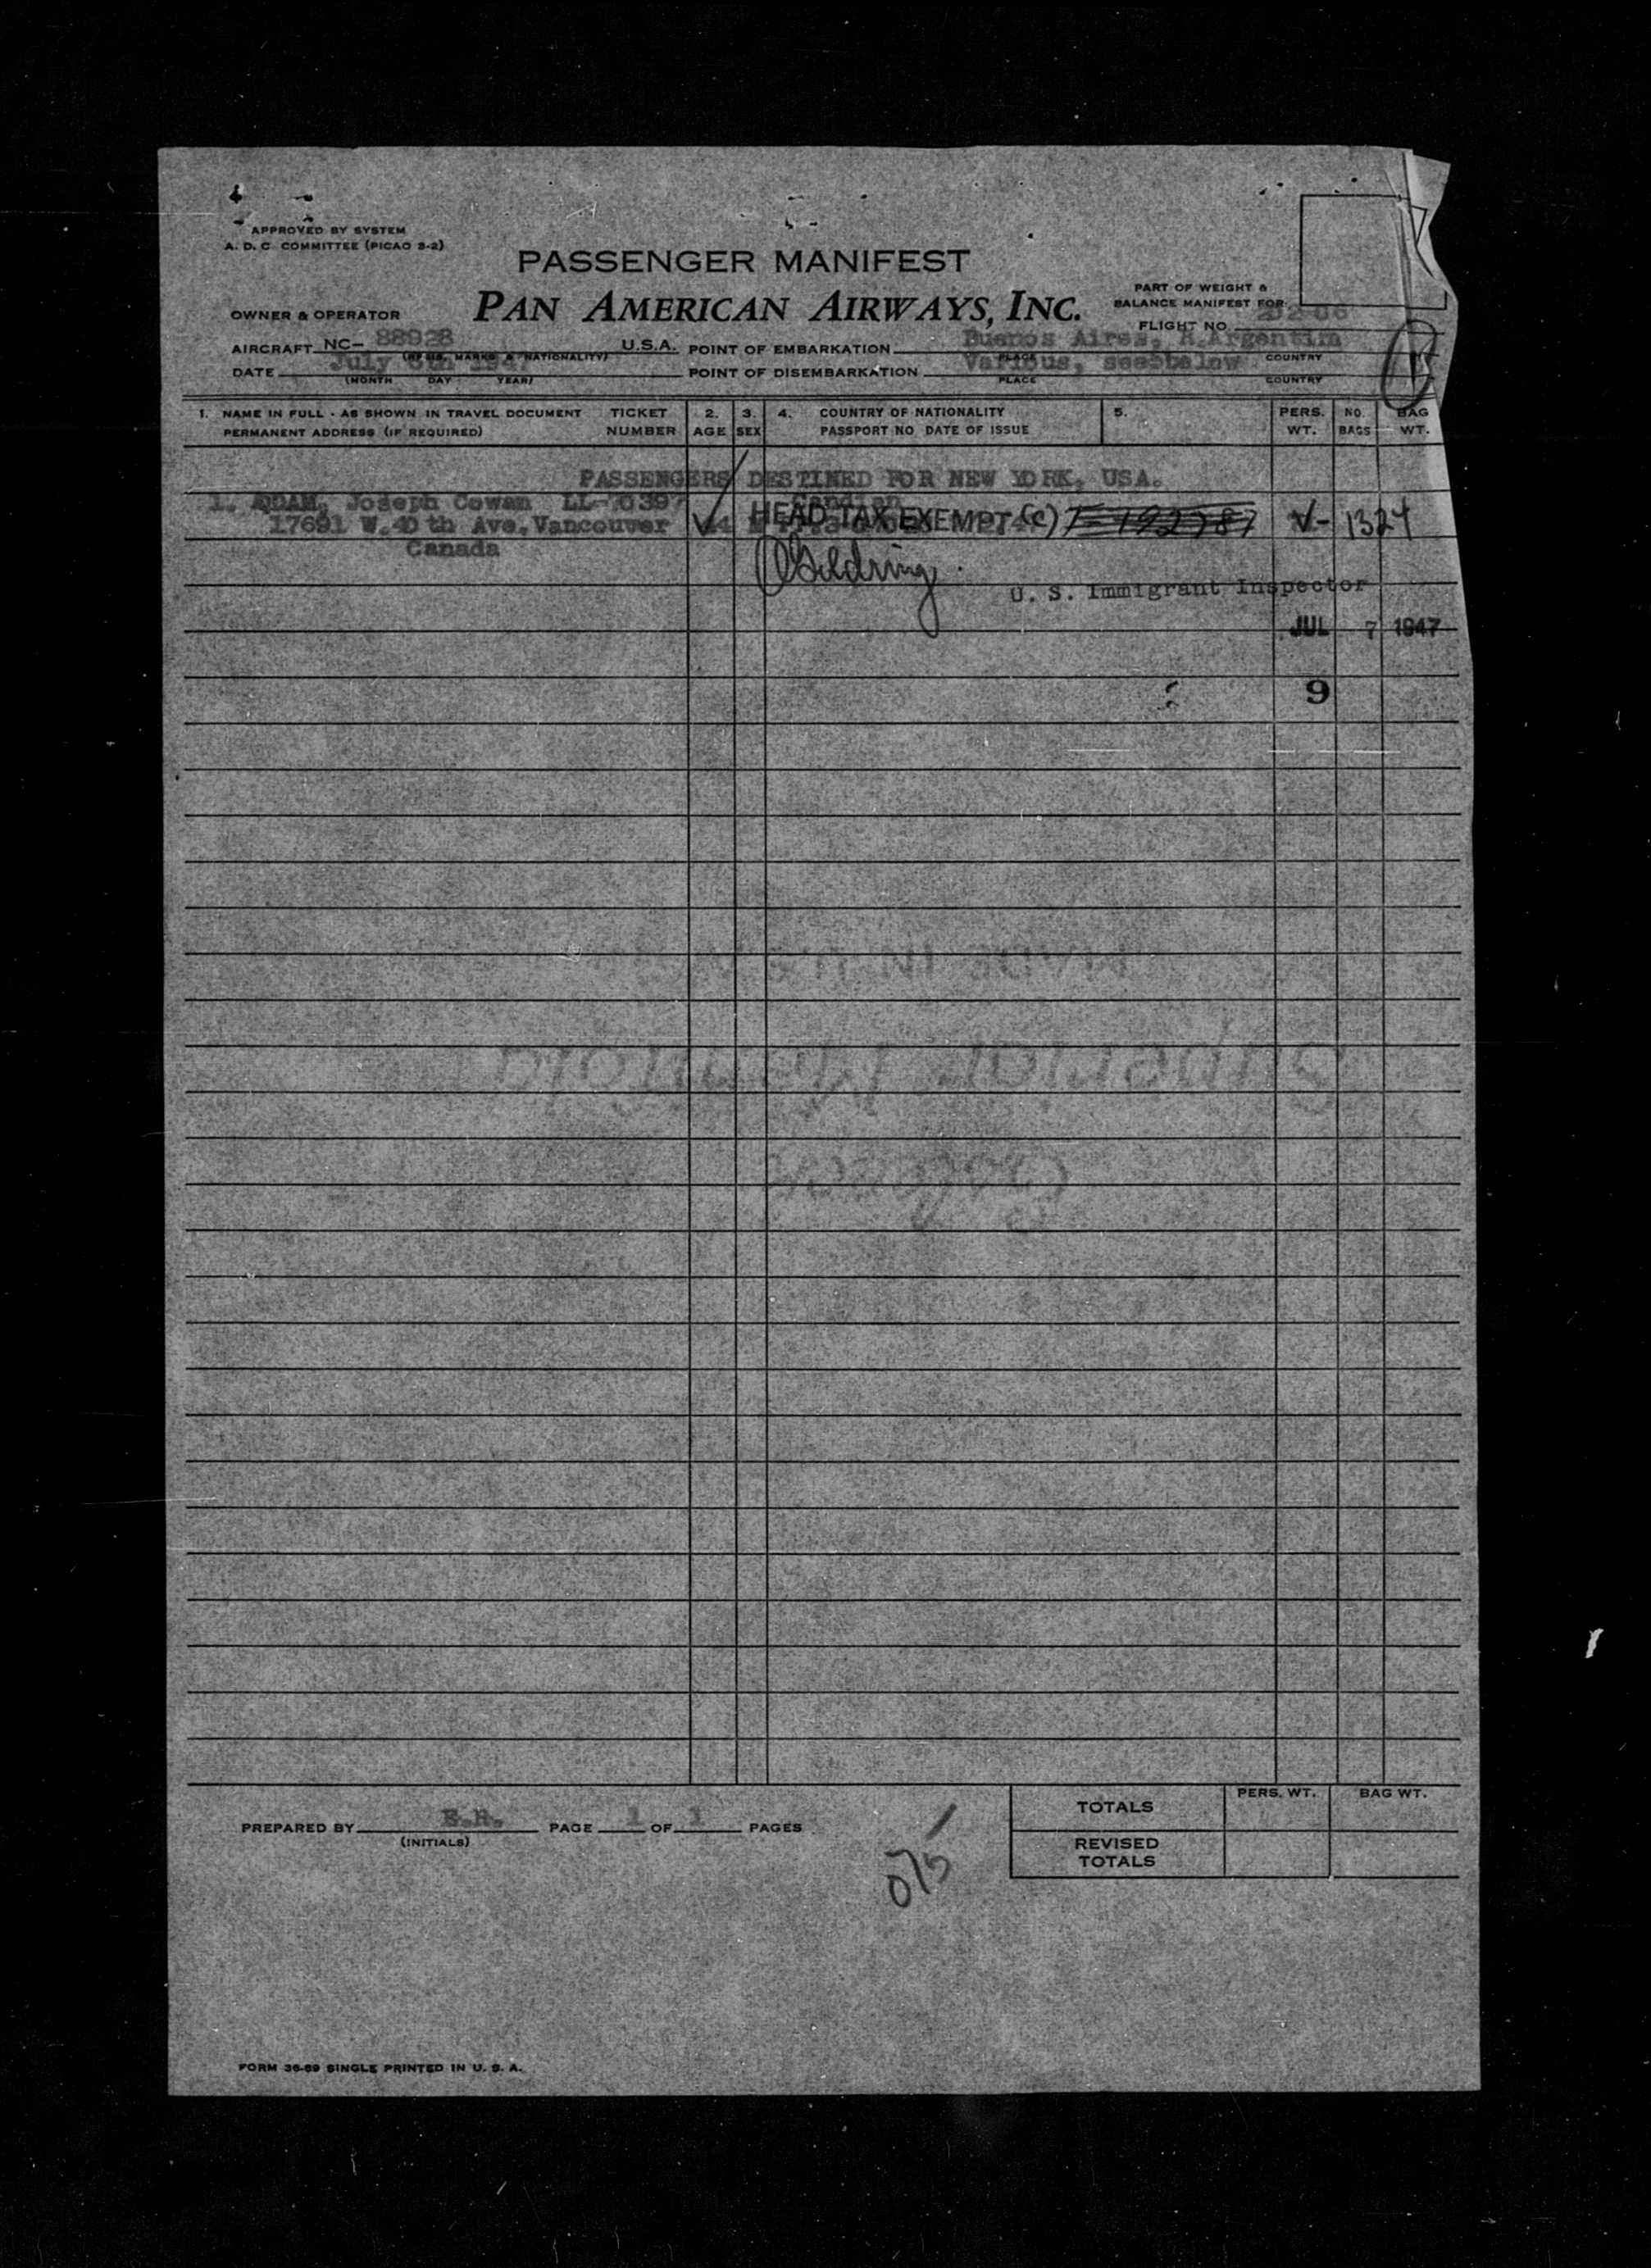 APPROVED BY SYSTEM
A. D. C. COMMITTEE (PICAO S-2)
PASSENGER MANIFEST
PAN AMERICAN AIRWAYS, INC.
OWNER & OPERATOR
PART OF WEIGHT &
BALANCE MANIFEST FOR:
FLIGHT NO.
AIRCRAFT NC- 88928 U.S.A. POINT OF EMBARKATION Buenos Aires, R.Argentina
MARKS & NATIONALITY) PLACE COUNTRY
DATE July 6th 1947 POINT OF DISEMBARKATION Various, see below
(MONTH DAY YEAR) PLACE COUNTRY
1. NAME IN FULL - AS SHOWN IN TRAVEL DOCUMENT TICKET 2. 3. 4. COUNTRY OF NATIONALITY 5. PERS. NO. BAG
PERMANENT ADDRESS (IF REQUIRED) NUMBER AGE SEX PASSPORT NO DATE OF ISSUE WT. BAGS WT.
PASSENGERS DESTINED FOR NEW YORK, USA.
1. ADAM, Joseph Cowan
17691 W.40 th Ave.Vancouver HEAD TAX EXEMPT (c) V- 1324
Canada
U. S. Immigrant Inspector
JUL 7 1947
9
PREPARED BY PAGE 1 OF 1 PAGES
(INITIALS)
TOTALS PERS. WT. BAG WT.
REVISED
TOTALS
FORM 36-69 SINGLE PRINTED IN U. S. A.